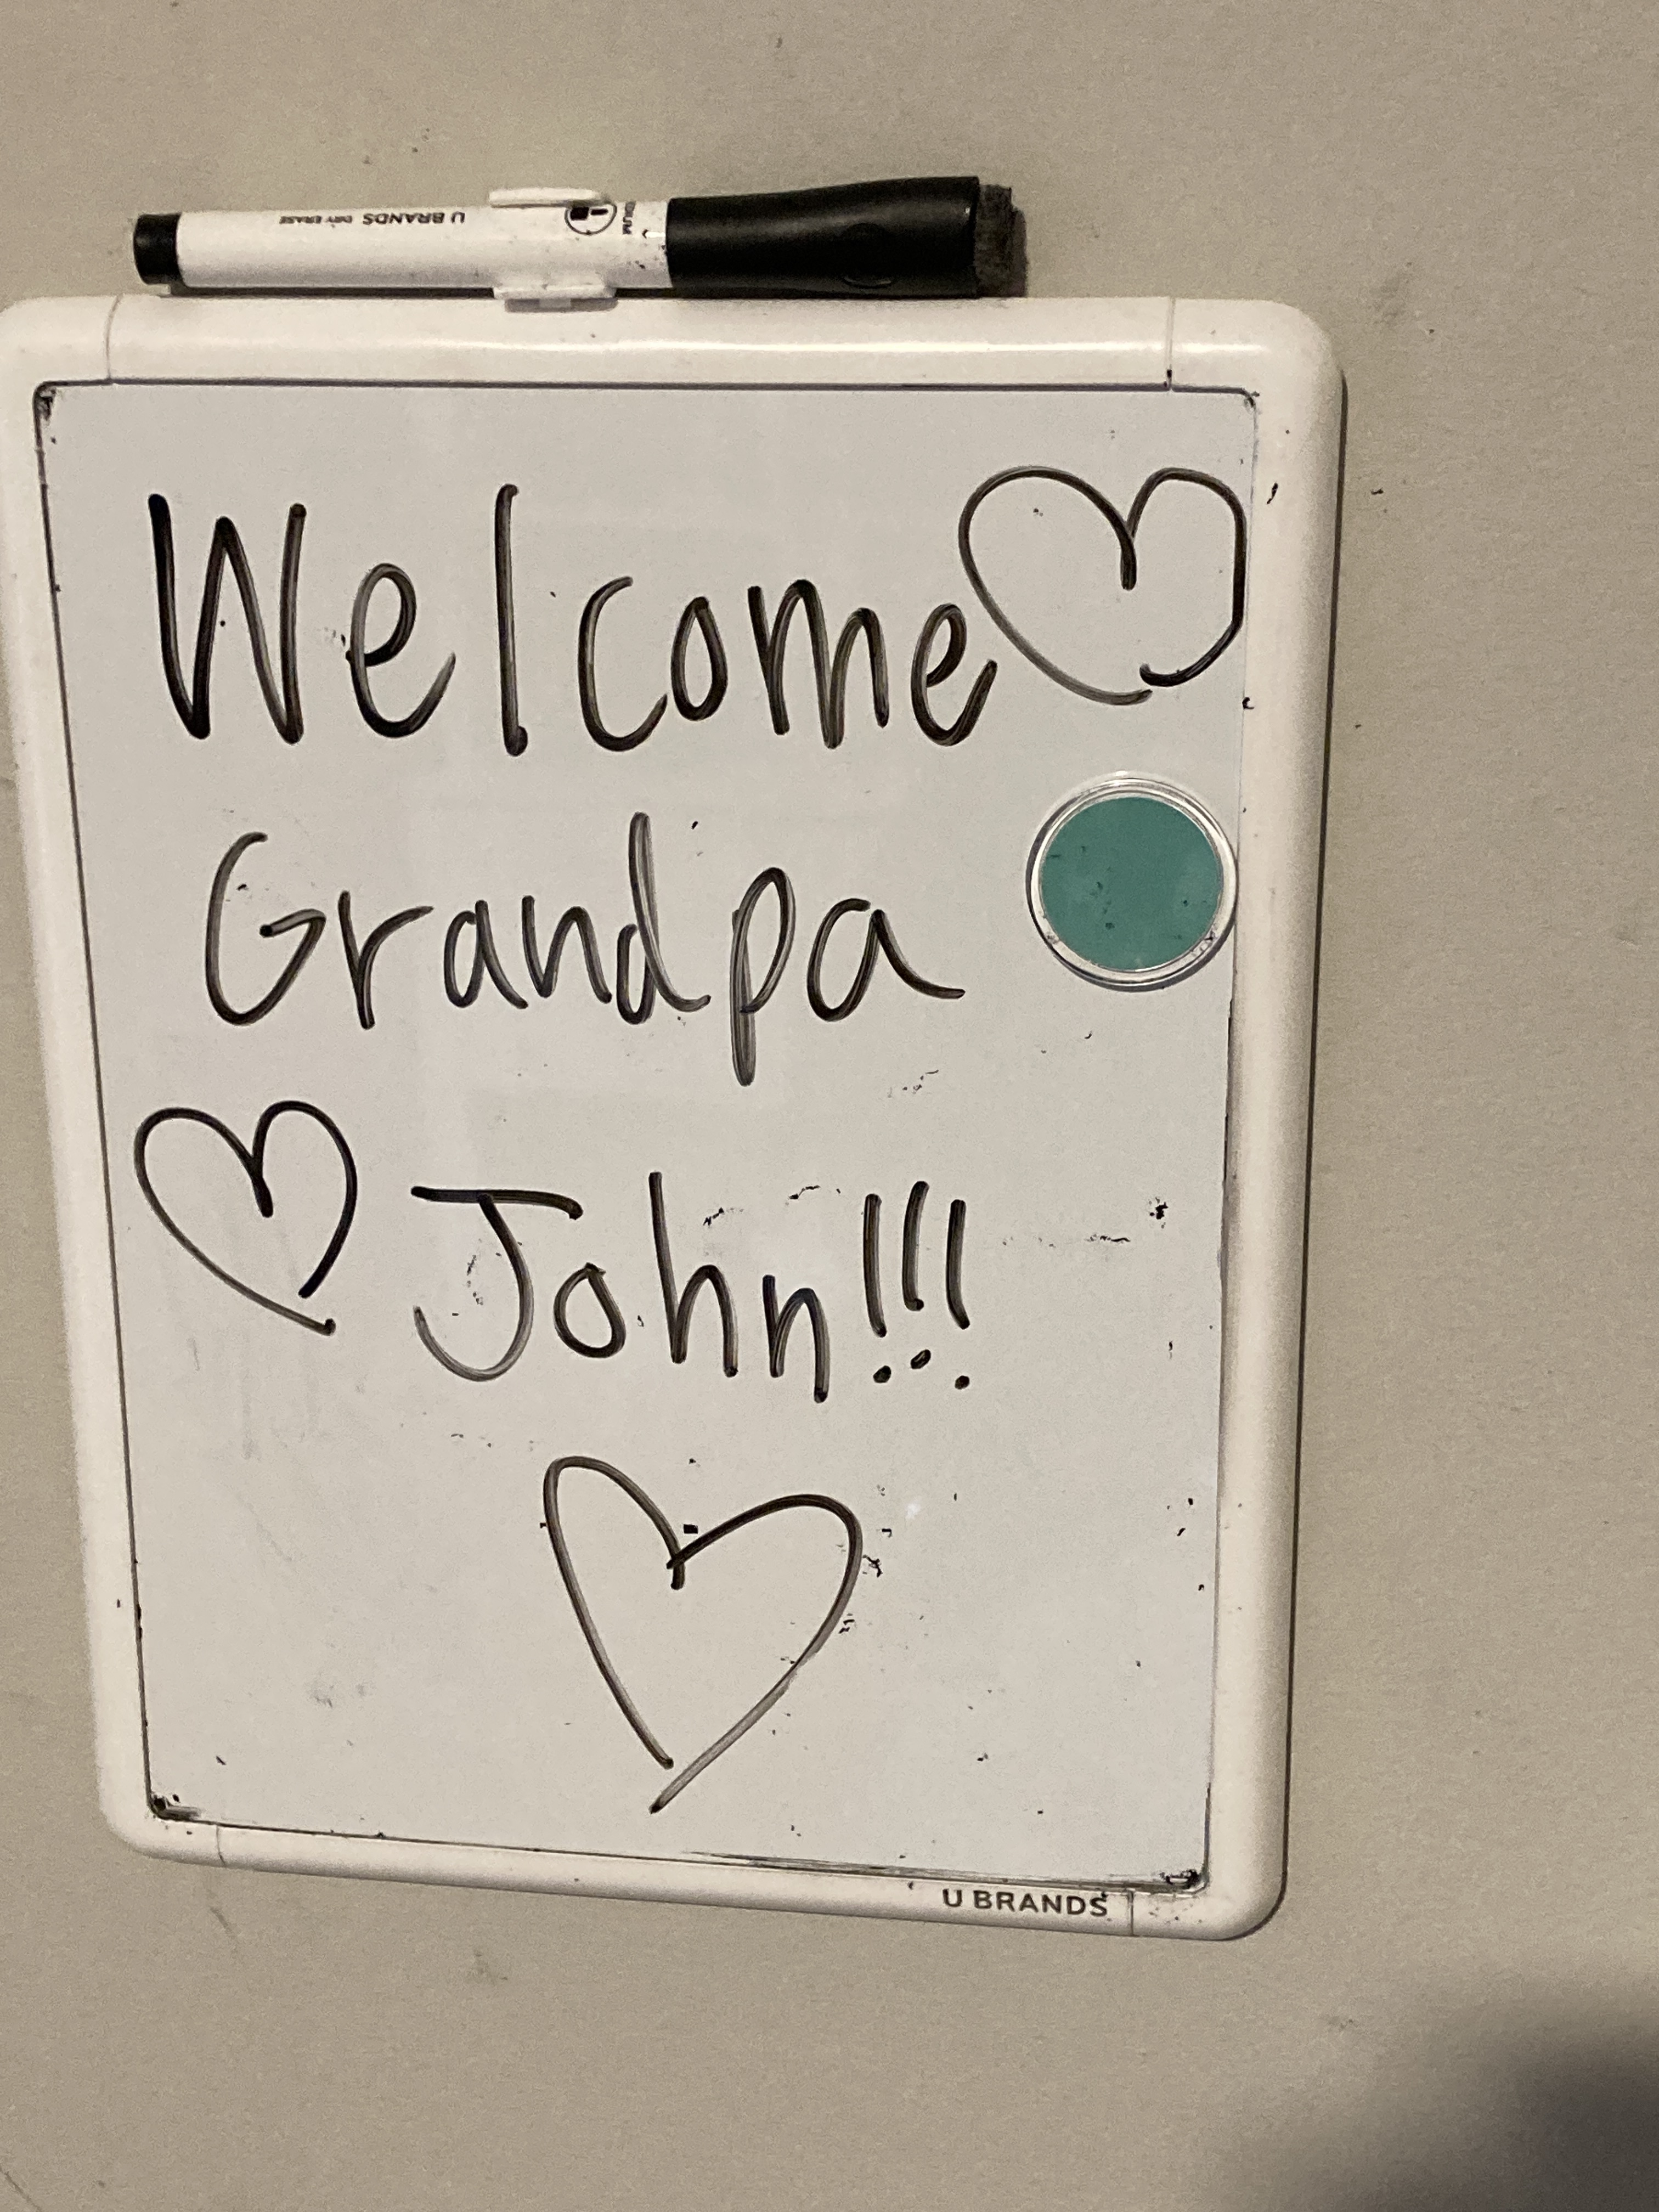 U BRANDS DRY ERASE
Welcome
Grandpa
John!!!
U BRANDS